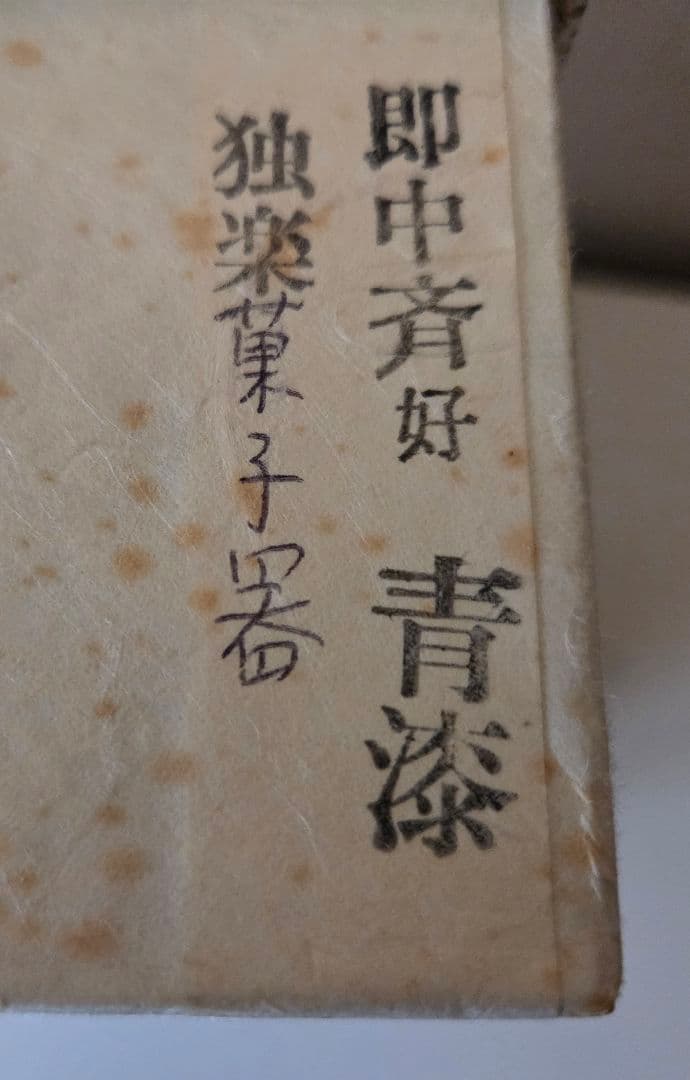 即中斉好　青漆
独楽菓子器